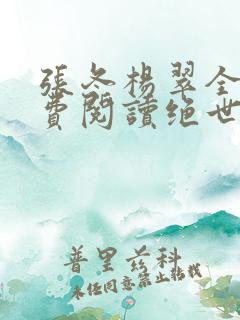 張冬楊翠全
費閱讀绝世
普里兹科
未经同意禁止转载